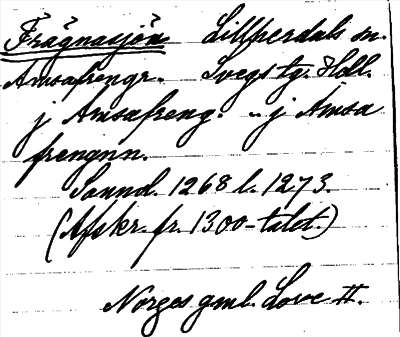 Frägnasjön Lillherdals sn.
Amsafrengr. Svegs tg. Hdl.
j Amsafreng. - j Amsa
frengnn.
Sannd. 1268 l. 1273.
(Afskr. fr. 1300-talet.)
Norges gml. Love II.